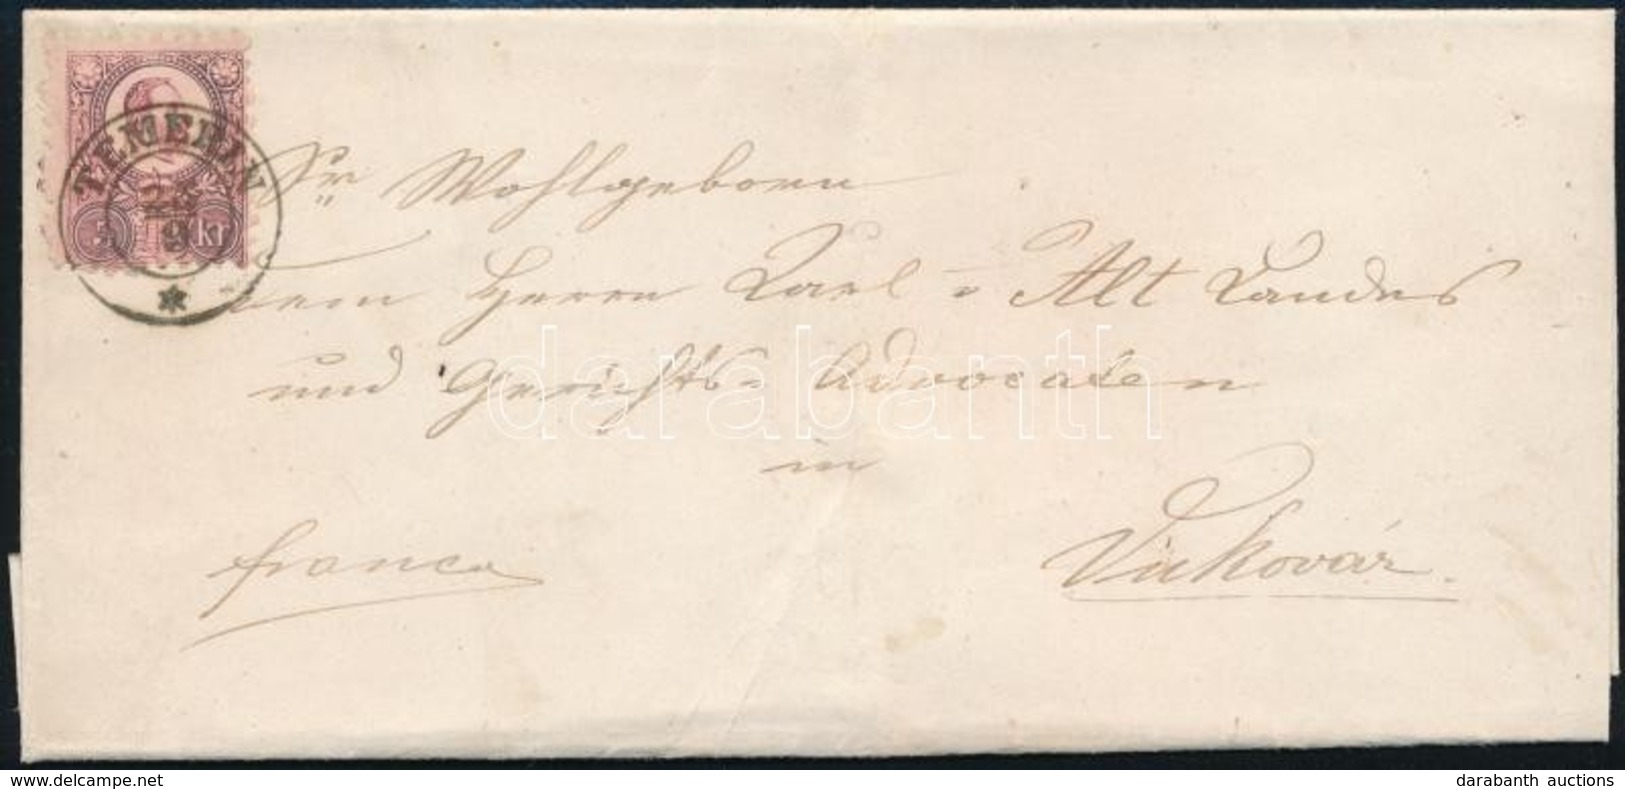 TEMERIN
25
9
5 kr
Sr Wohlgeboren
dem Herrn Karl = Alt Landes
und Gerichts= Advocaten
in
franco
Vukovár.
darabanth
darabanth auctions